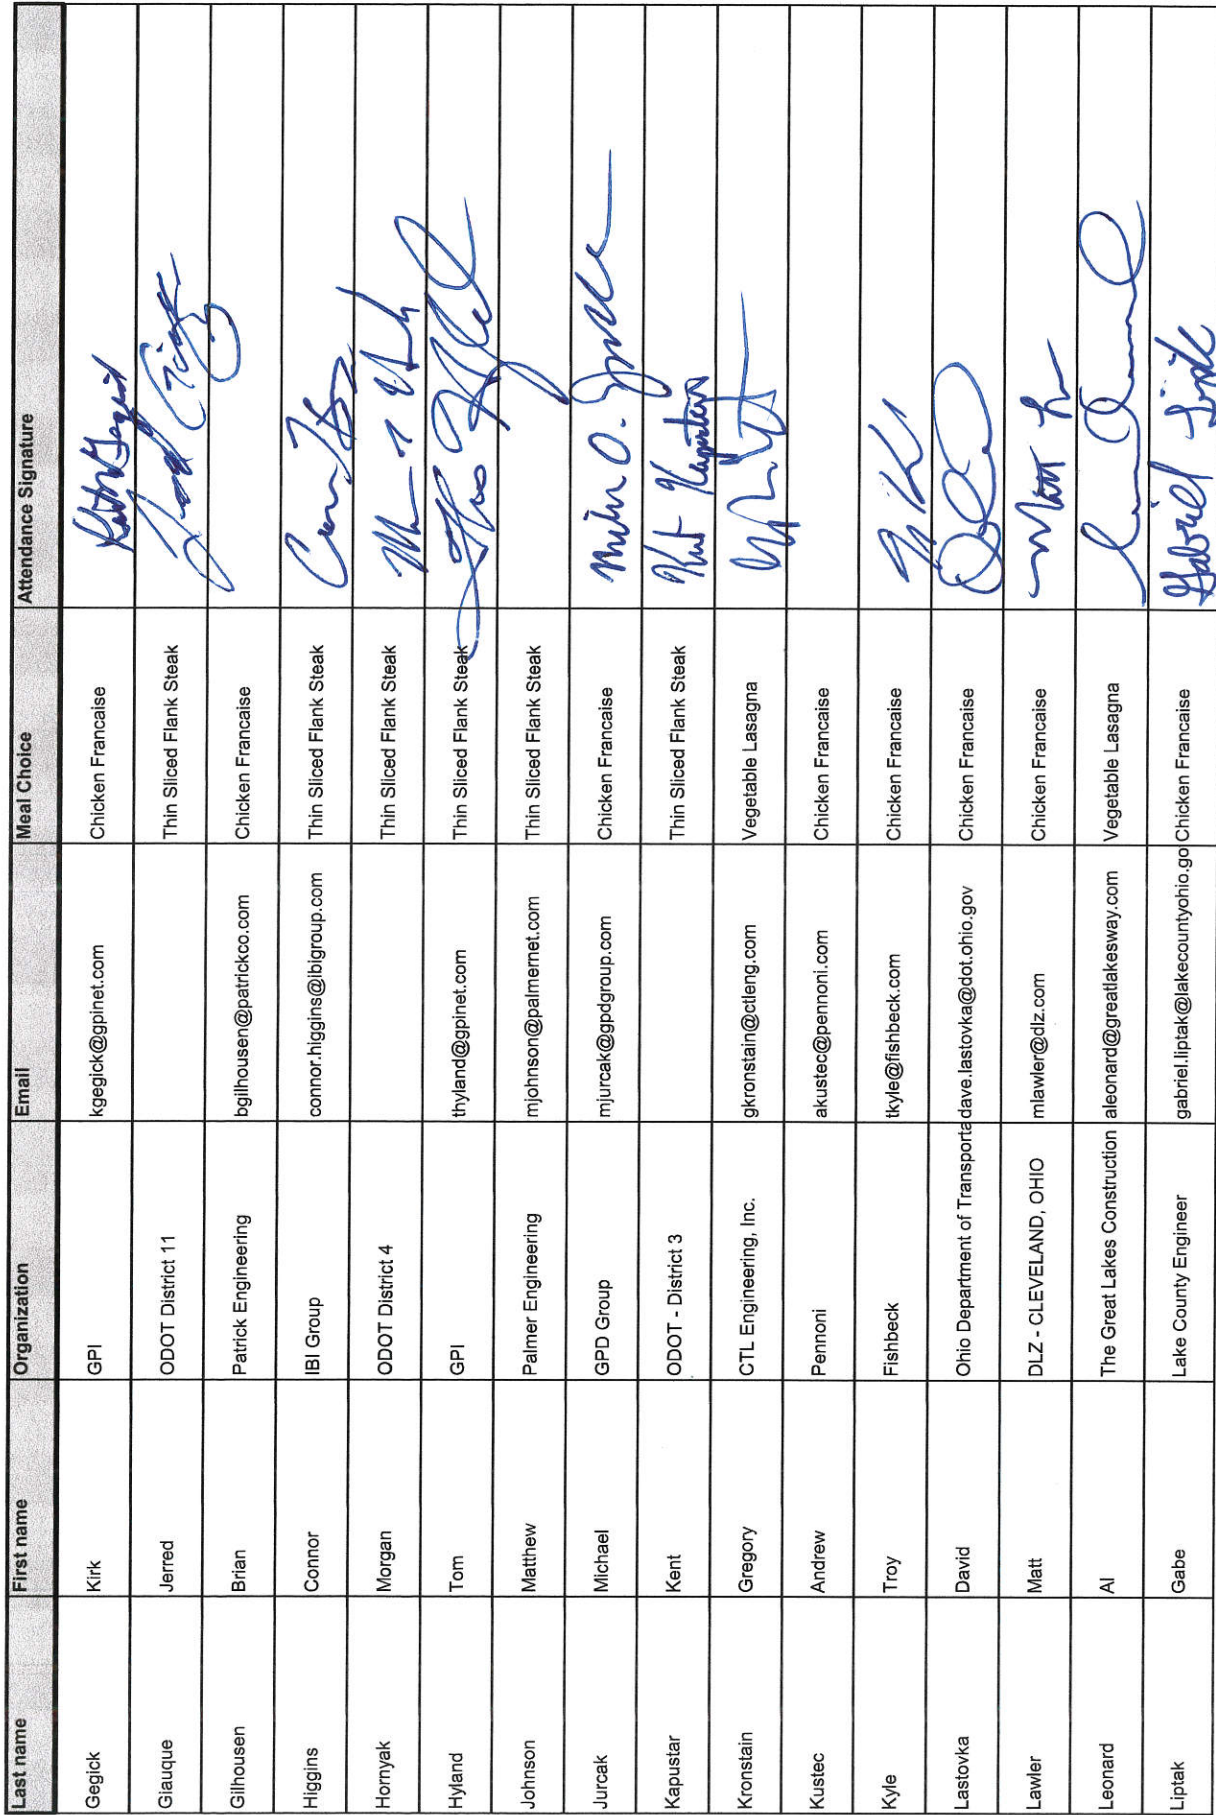 Last name First name Organization Email Meal Choice Attendance Signature
Gegick Kirk GPI kgegick@gpinet.com Chicken Francaise
Giauque Jerred ODOT District 11 Thin Sliced Flank Steak
Gilhousen Brian Patrick Engineering bgilhousen@patrickco.com Chicken Francaise
Higgins Connor IBI Group connor.higgins@ibigroup.com Thin Sliced Flank Steak
Hornyak Morgan ODOT District 4 Thin Sliced Flank Steak
Hyland Tom GPI thyland@gpinet.com Thin Sliced Flank Steak
Johnson Matthew Palmer Engineering mjohnson@palmernet.com Thin Sliced Flank Steak
Jurcak Michael GPD Group mjurcak@gpdgroup.com Chicken Francaise
Kapustar Kent ODOT - District 3 Thin Sliced Flank Steak
Kronstain Gregory CTL Engineering, Inc. gkronstain@ctleng.com Vegetable Lasagna
Kustec Andrew Pennoni akustec@pennoni.com Chicken Francaise
Kyle Troy Fishbeck tkyle@fishbeck.com Chicken Francaise
Lastovka David Ohio Department of Transporta dave.lastovka@dot.ohio.gov Chicken Francaise
Lawler Matt DLZ - CLEVELAND, OHIO mlawler@dlz.com Chicken Francaise Matt
Leonard Al The Great Lakes Construction aleonard@greatlakesway.com Vegetable Lasagna
Liptak Gabe Lake County Engineer gabriel.liptak@lakecountyohio.go Chicken Francaise Gabriel